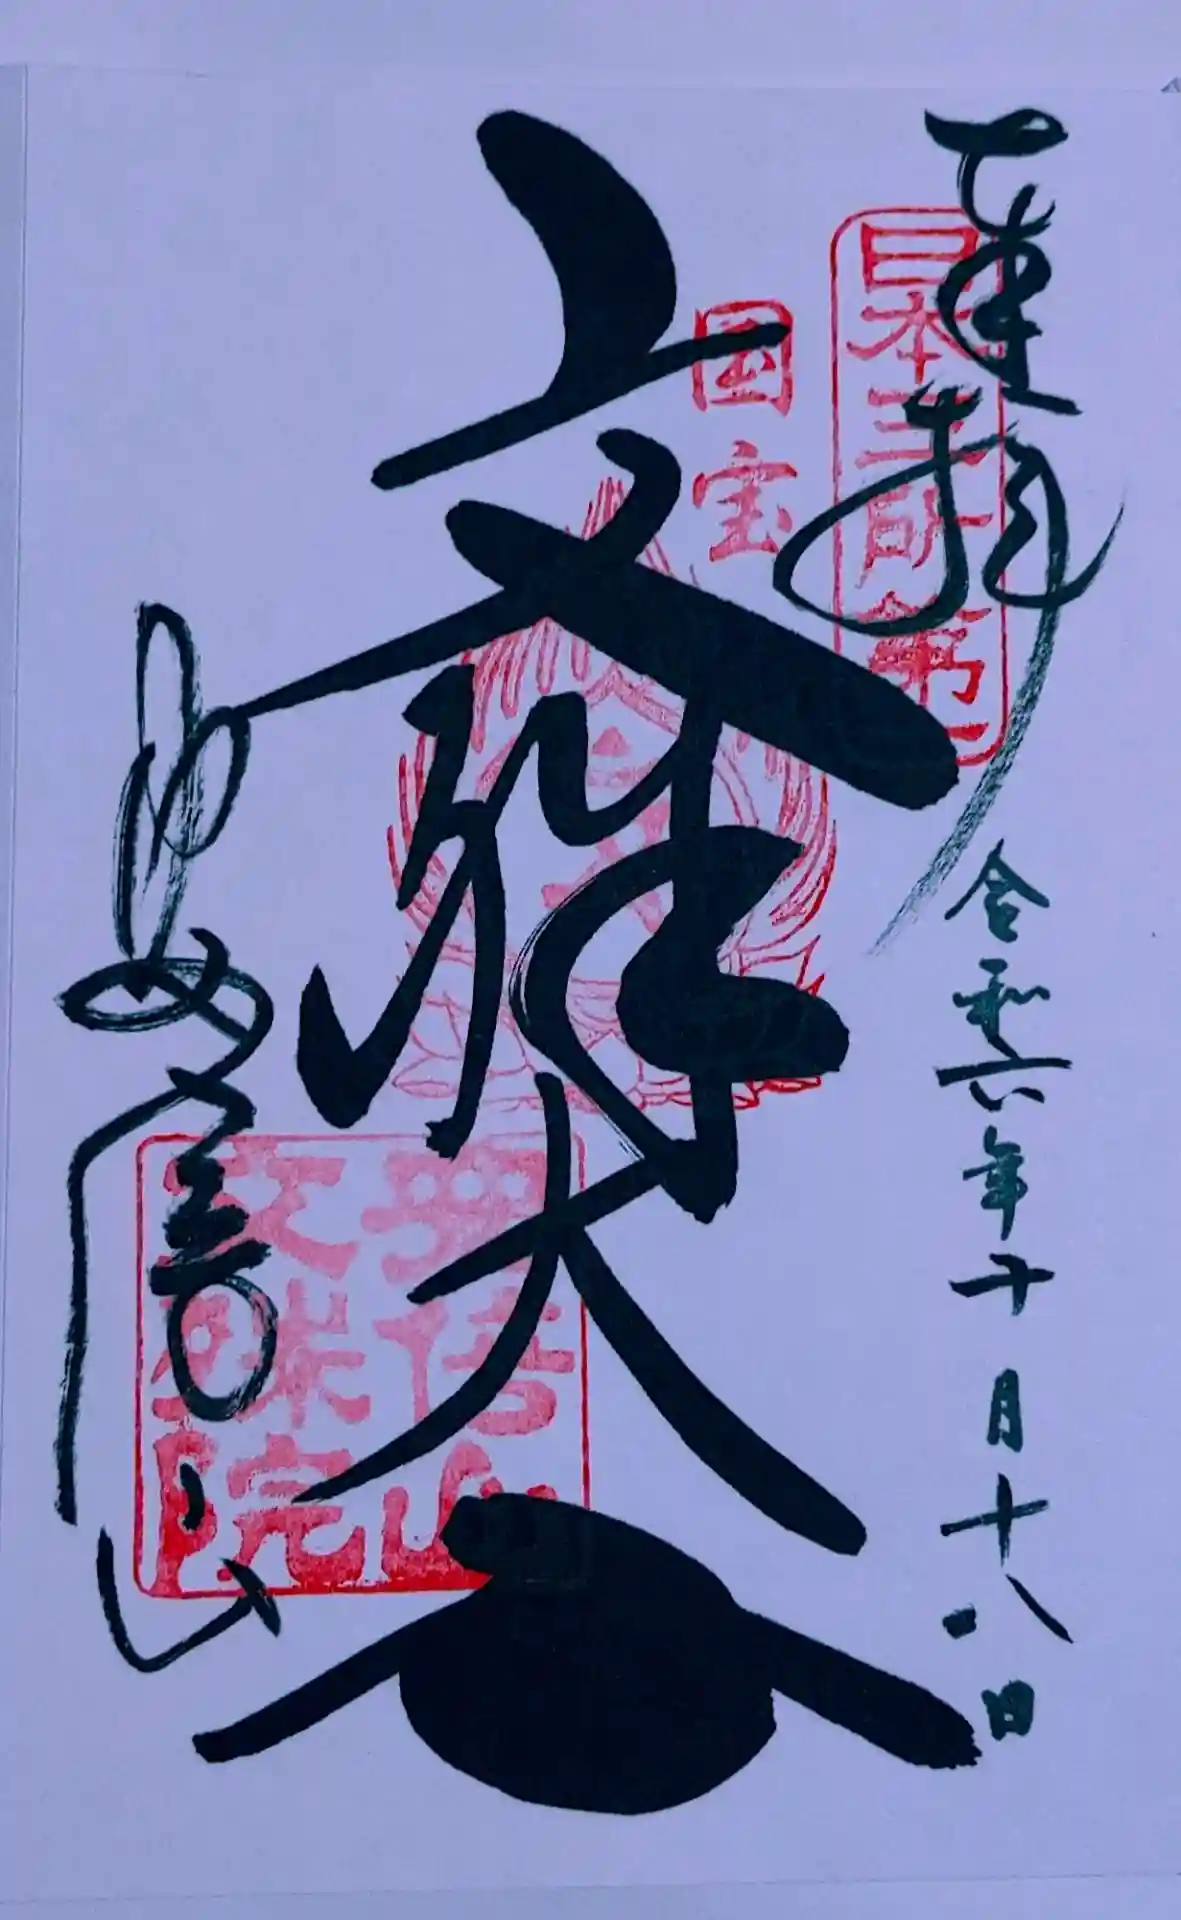 奉拝
日本三所第一
令和六年十月十八日
国宝
文殊大
安倍山
安倍山
文殊院